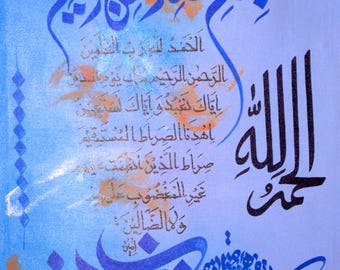 بسم الله الرحمن الرحيم
الحمد لله رب العالمين
الرحمن الرحيم مالك يوم الدين
إياك نعبد وإياك نستعين
اهدنا الصراط المستقيم
صراط الذين أنعمت عليهم
غير المغضوب عليهم
ولا الضالين
الحمد لله